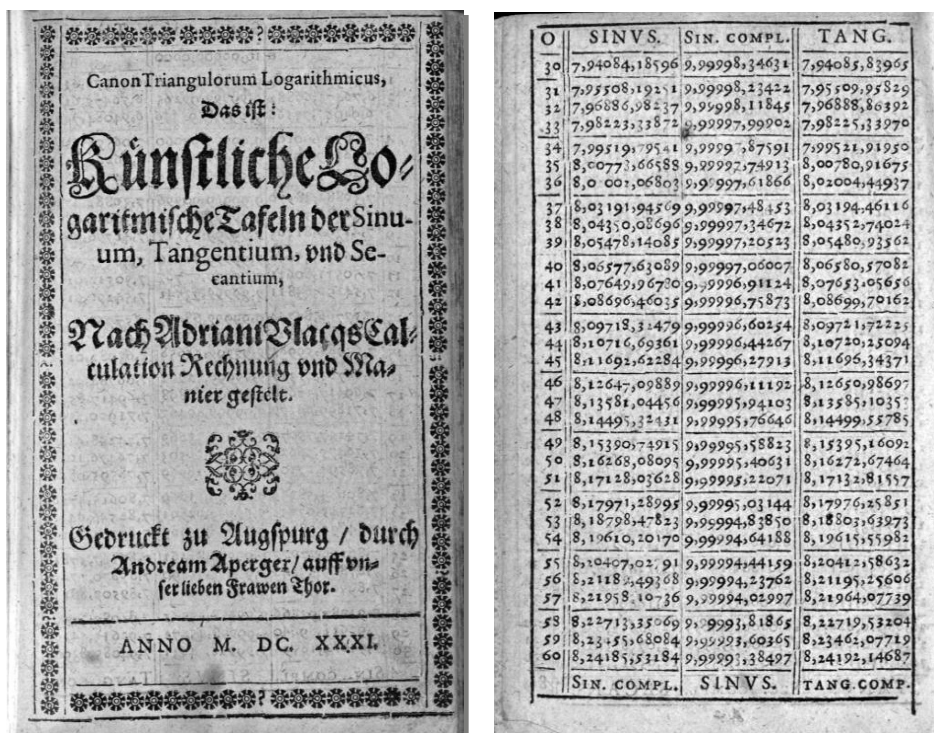 Canon Triangulorum Logarithmicus,
Das ist:
Künstliche Lo-
garitmische Tafeln der Sinu-
um, Tangentium, vnd Se-
cantium,
Nach Adriani Vlacqs Cal-
culation Rechnung vnd Ma-
nier gestelt.
Gedruckt zu Augspurg / durch
Andream Aperger / auff vn-
ser lieben Frawen Thor.
ANNO M. DC. XXXI.
O SINVS. SIN. COMPL. TANG.
30 7,94084,18596 9,99998,34631 7,94085,83965
31 9,99998,23422 7,95509,95829
32 7,96886,98237 9,99998,11845 7,96888,86392
33 7,98223,33872 9,99997,99902 7,98225,33970
34 9,99997,87591 7,99521,91950
35 8,00773,66588 9,99997,74913 8,00780,91675
36 9,99997,61866 8,02004,44937
37 8,03191,94569 9,99997,48453 8,03194,46116
38 8,04350,08696 9,99997,34672 8,04352,74024
39 8,05478,14085 9,99997,20523 8,05480,93562
40 8,06577,63089 9,99997,06007 8,06580,57082
41 9,99996,91124 8,07653,05656
42 8,08696,46035 9,99996,75873 8,08699,70162
43 9,99996,60254 8,09721,72225
44 8,10716,69361 9,99996,44267 8,10720,25094
45 8,11692,62284 9,99996,27913 8,11696,34371
46 8,12647,09889 9,99996,11192 8,12650,98697
47 8,13581,04456 9,99995,94103
48 9,99995,76646 8,14499,55785
49 8,15390,74915 9,99995,58823 8,15395,16092
50 8,16268,08095 9,99995,40631 8,16272,67464
51 8,17128,03628 9,99995,22071 8,17132,81557
52 8,17971,28995 9,99995,03144 8,17976,25851
53 8,18798,47823 9,99994,83850 8,18803,63973
54 8,19610,20170 9,99994,64188 8,19615,55982
55 9,99994,44159 8,20412,58632
56 9,99994,23762 8,21195,25606
57 8,21958,10736 9,99994,02997 8,21964,07739
58 8,22713,35069 9,99993,81865 8,22719,53204
59 8,23455,68084 9,99993,60365 8,23462,07719
60 8,24185,53184 9,99993,38497 8,24192,14687
SIN. COMPL. SINVS. TANG.COMP.